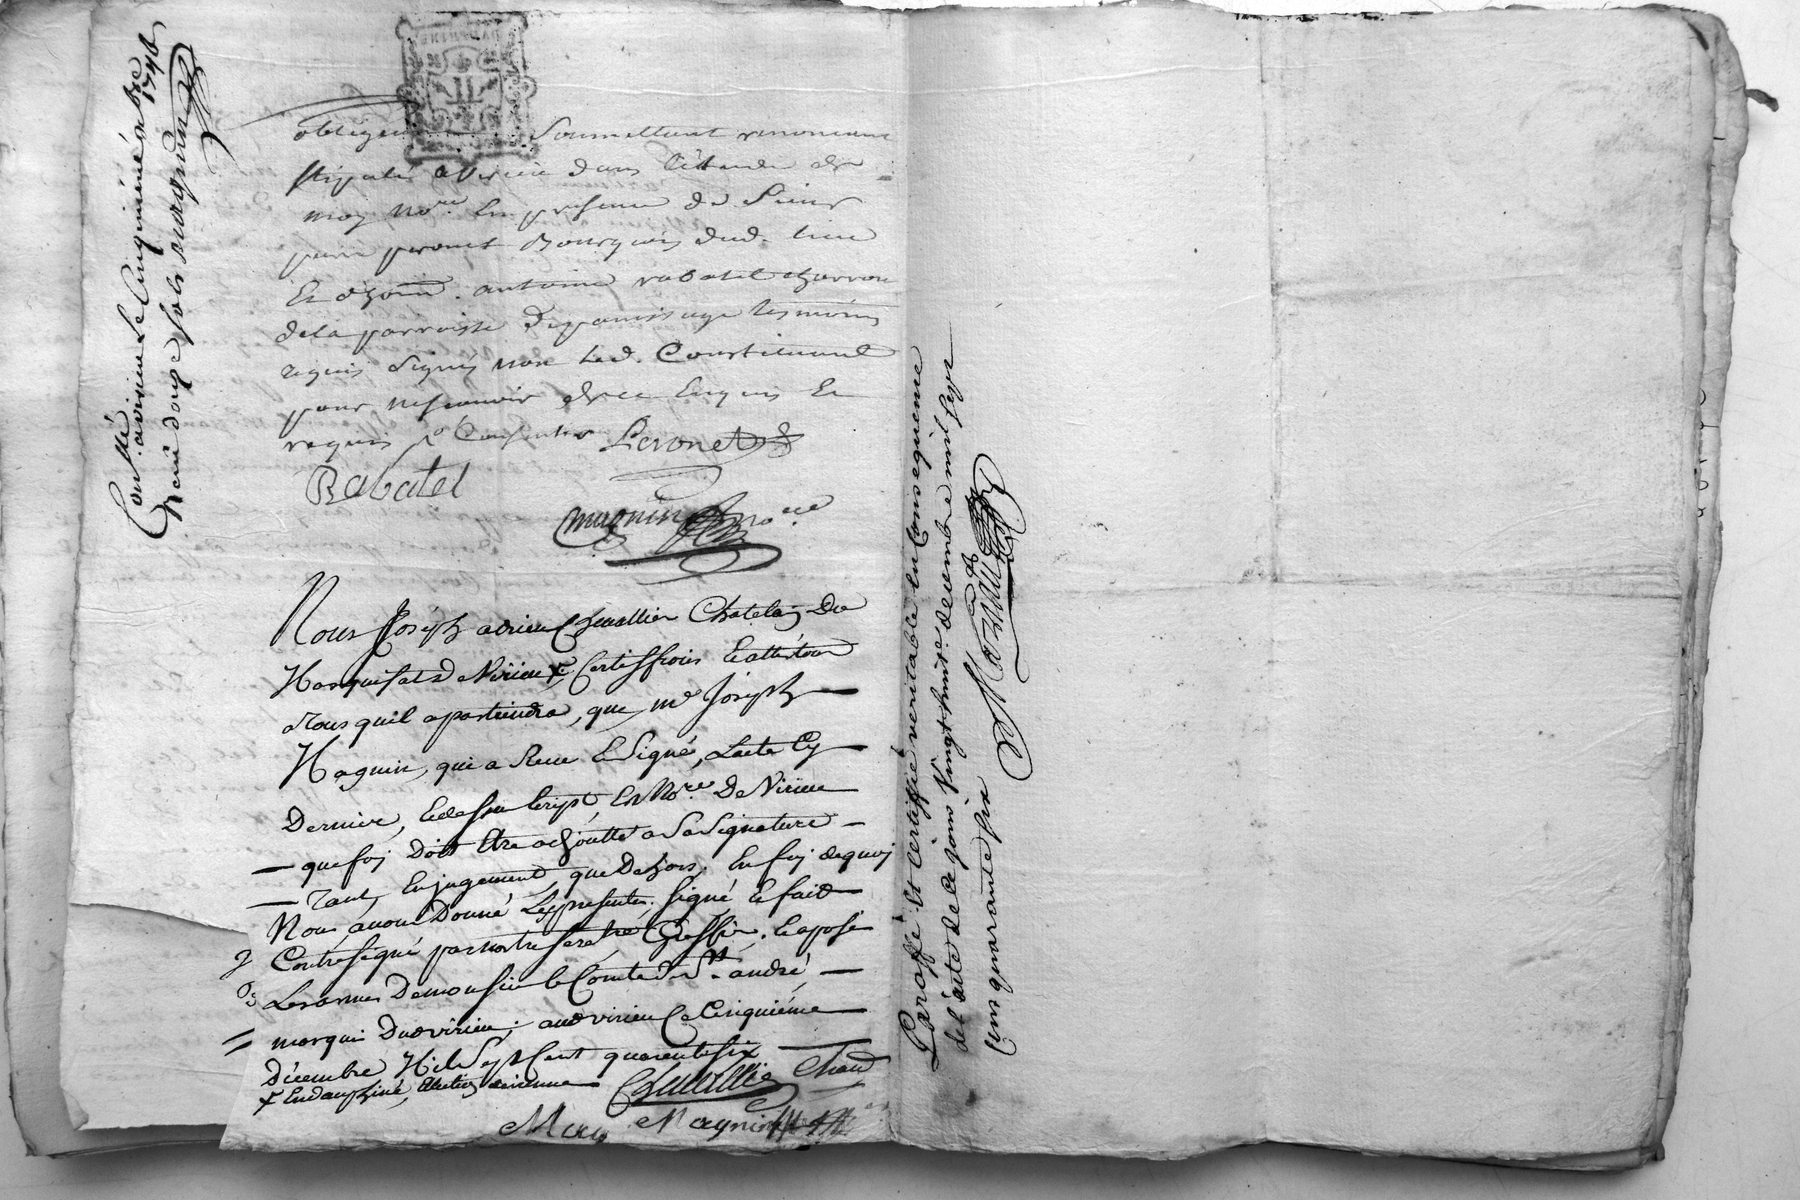 Conllé avirieu Le Cinquiéme xbre 1746
Reçu douze sols magnin
DAUPHINE
II
obligeant soumettant renonceant
stipulé a Virieu dans l'étude de
moy nore. En presence de Sieur
pierre peronet Bourgeois dud. lieu
Et dhonn. antoine rabatel charron
dela parroisse depanissage tesmoins
requis signés non led. Constituant
pour ne sçavoir de ce Enquis Et
requis Peronet
Rabatel
magnin nore
Nous Joseph adrien Chevallier Chatelain Du
Marquisat de Virieu x, Certiffions Et attestons
a tous quil apartiendra, que me Joseph
Magnin, qui a Receu & Signé, Lacte Cy
Dernier, Et dessus Script, Est Nore De Virieu
que foy Doit Etre adjoutté a Sa Signature
Tant En jugement que Dehors, En foy dequoy
Nous avons Donné Les presentes signé & fait
Contresigné par nostre Secretre Greffier, & aposé
Les armes De monsieur le Comte de St. andré,
marquis Dud virieu; aud virieu Ce Cinquiéme
Décembre Mil Sept Cent quarente six
x En dauphiné, Election de vienne Chevallier Chan
Magnin
Paraffé Et Certiffié veritable en Consequence
de l'acte de ce jour vingt huite. decembre mil sept
cens quarante six